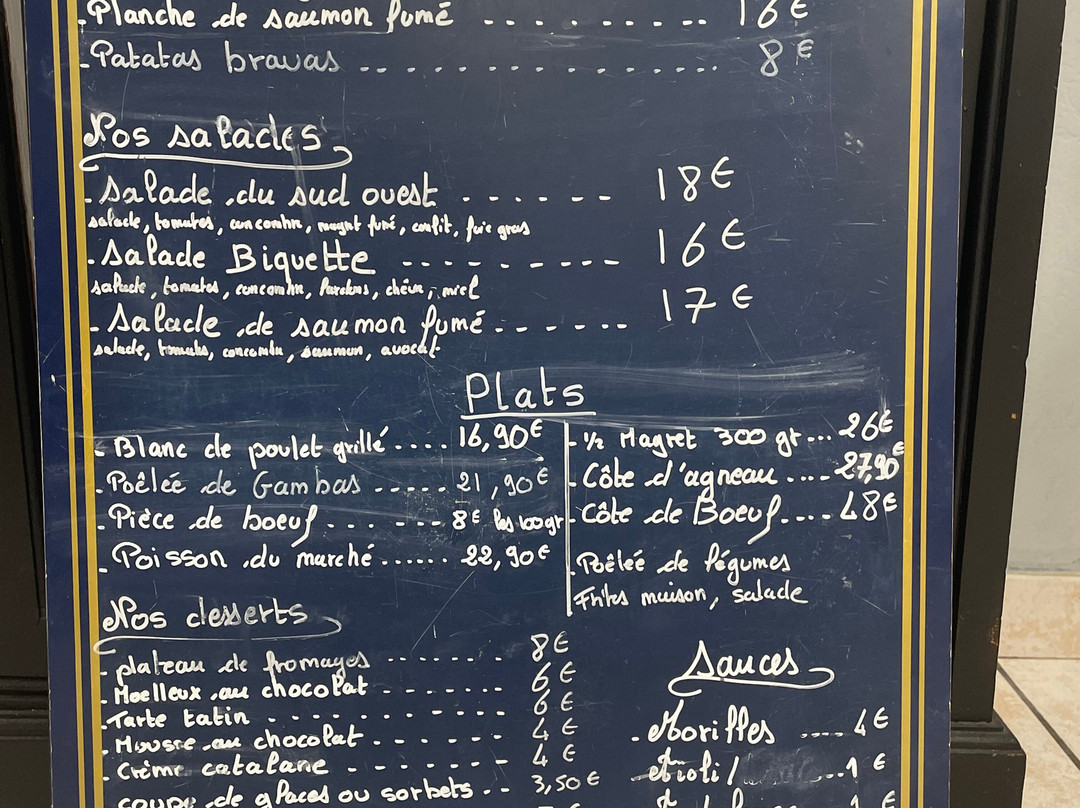 -Planche de saumon fumé ........ 16€
-Patatas bravas ................ 8€
Nos salades
-Salade du sud ouest ...... 18€
salade, tomates, concombre, magret fumé, confit, foie gras
-Salade Biquette ......... 16€
salade, tomates, concombre, lardons, chèvre, miel
-Salade de saumon fumé ...... 17€
salade, tomates, concombre, saumon, avocat
Plats
-Blanc de poulet grillé .... 16,90€
-Poêlée de Gambas ..... 21,90€
-Pièce de boeuf ... ... 8€ les 100gr
-Poisson du marché ...... 22,90€
-1/2 Magret 300 gr ... 26€
-Côte d'agneau .... 27,90€
-Côte de Boeuf .... 48€
Poêlée de légumes
Frites maison, salade
Nos desserts
-plateau de fromages ....... 8€
-Moelleux au chocolat ....... 6€
-Tarte tatin .......... 6€
-Mousse au chocolat ...... 4€
-Crème catalane ....... 4€
coupe de glaces ou sorbets .. 3,50€
Sauces
-Morilles .... 4€
...1€
1€